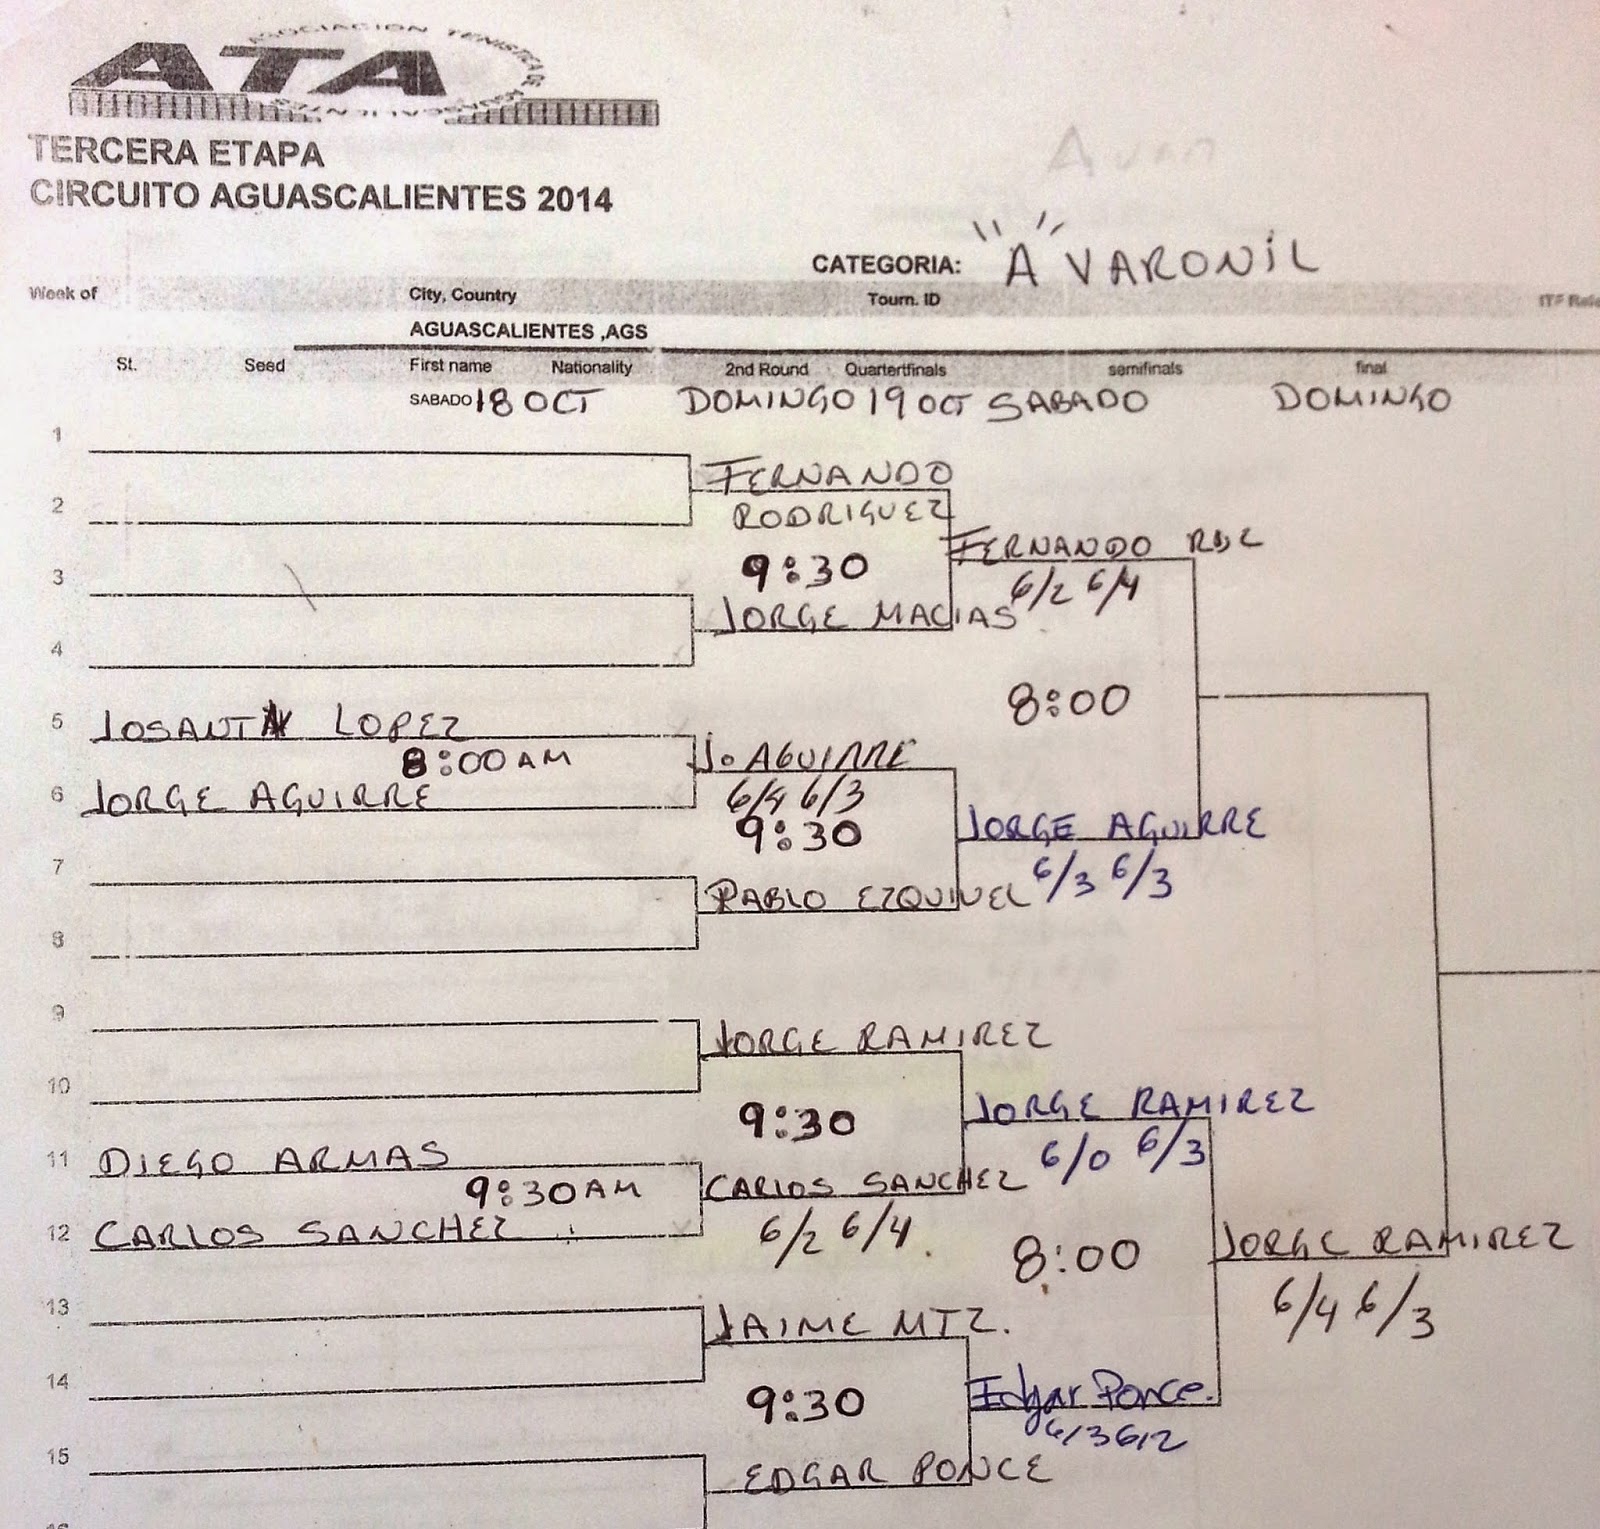 ASOCIACION TENISTICA DE
ATA
TERCERA ETAPA
CIRCUITO AGUASCALIENTES 2014
CATEGORIA: "A" VARONIL
Week of City, Country Tourn. ID ITF
AGUASCALIENTES ,AGS
St. Seed First name Nationality 2nd Round Quartertfinals semifinals final
SABADO 18 OCT DOMINGO 19 OCT SABADO DOMINGO
1
FERNANDO
2
RODRIGUEZ
FERNANDO RDZ
9:30
6/2 6/4
3
JORGE MACIAS
4
8:00
5 JOSANTA LOPEZ
8:00 AM
J. AGUIRRE
6 JORGE AGUIRRE
6/4 6/3
9:30
JORGE AGUIRRE
6/3 6/3
7
PABLO EZQUIVEL
8
9
JORGE RAMIREZ
10
9:30
JORGE RAMIREZ
6/0 6/3
11 DIEGO ARMAS
9:30 AM
CARLOS SANCHEZ
12 CARLOS SANCHEZ
6/2 6/4.
8:00
JORGE RAMIREZ
6/4 6/3
13
JAIME MTZ.
14
9:30
Edgar Ponce.
6/3 6/2
15
EDGAR PONCE